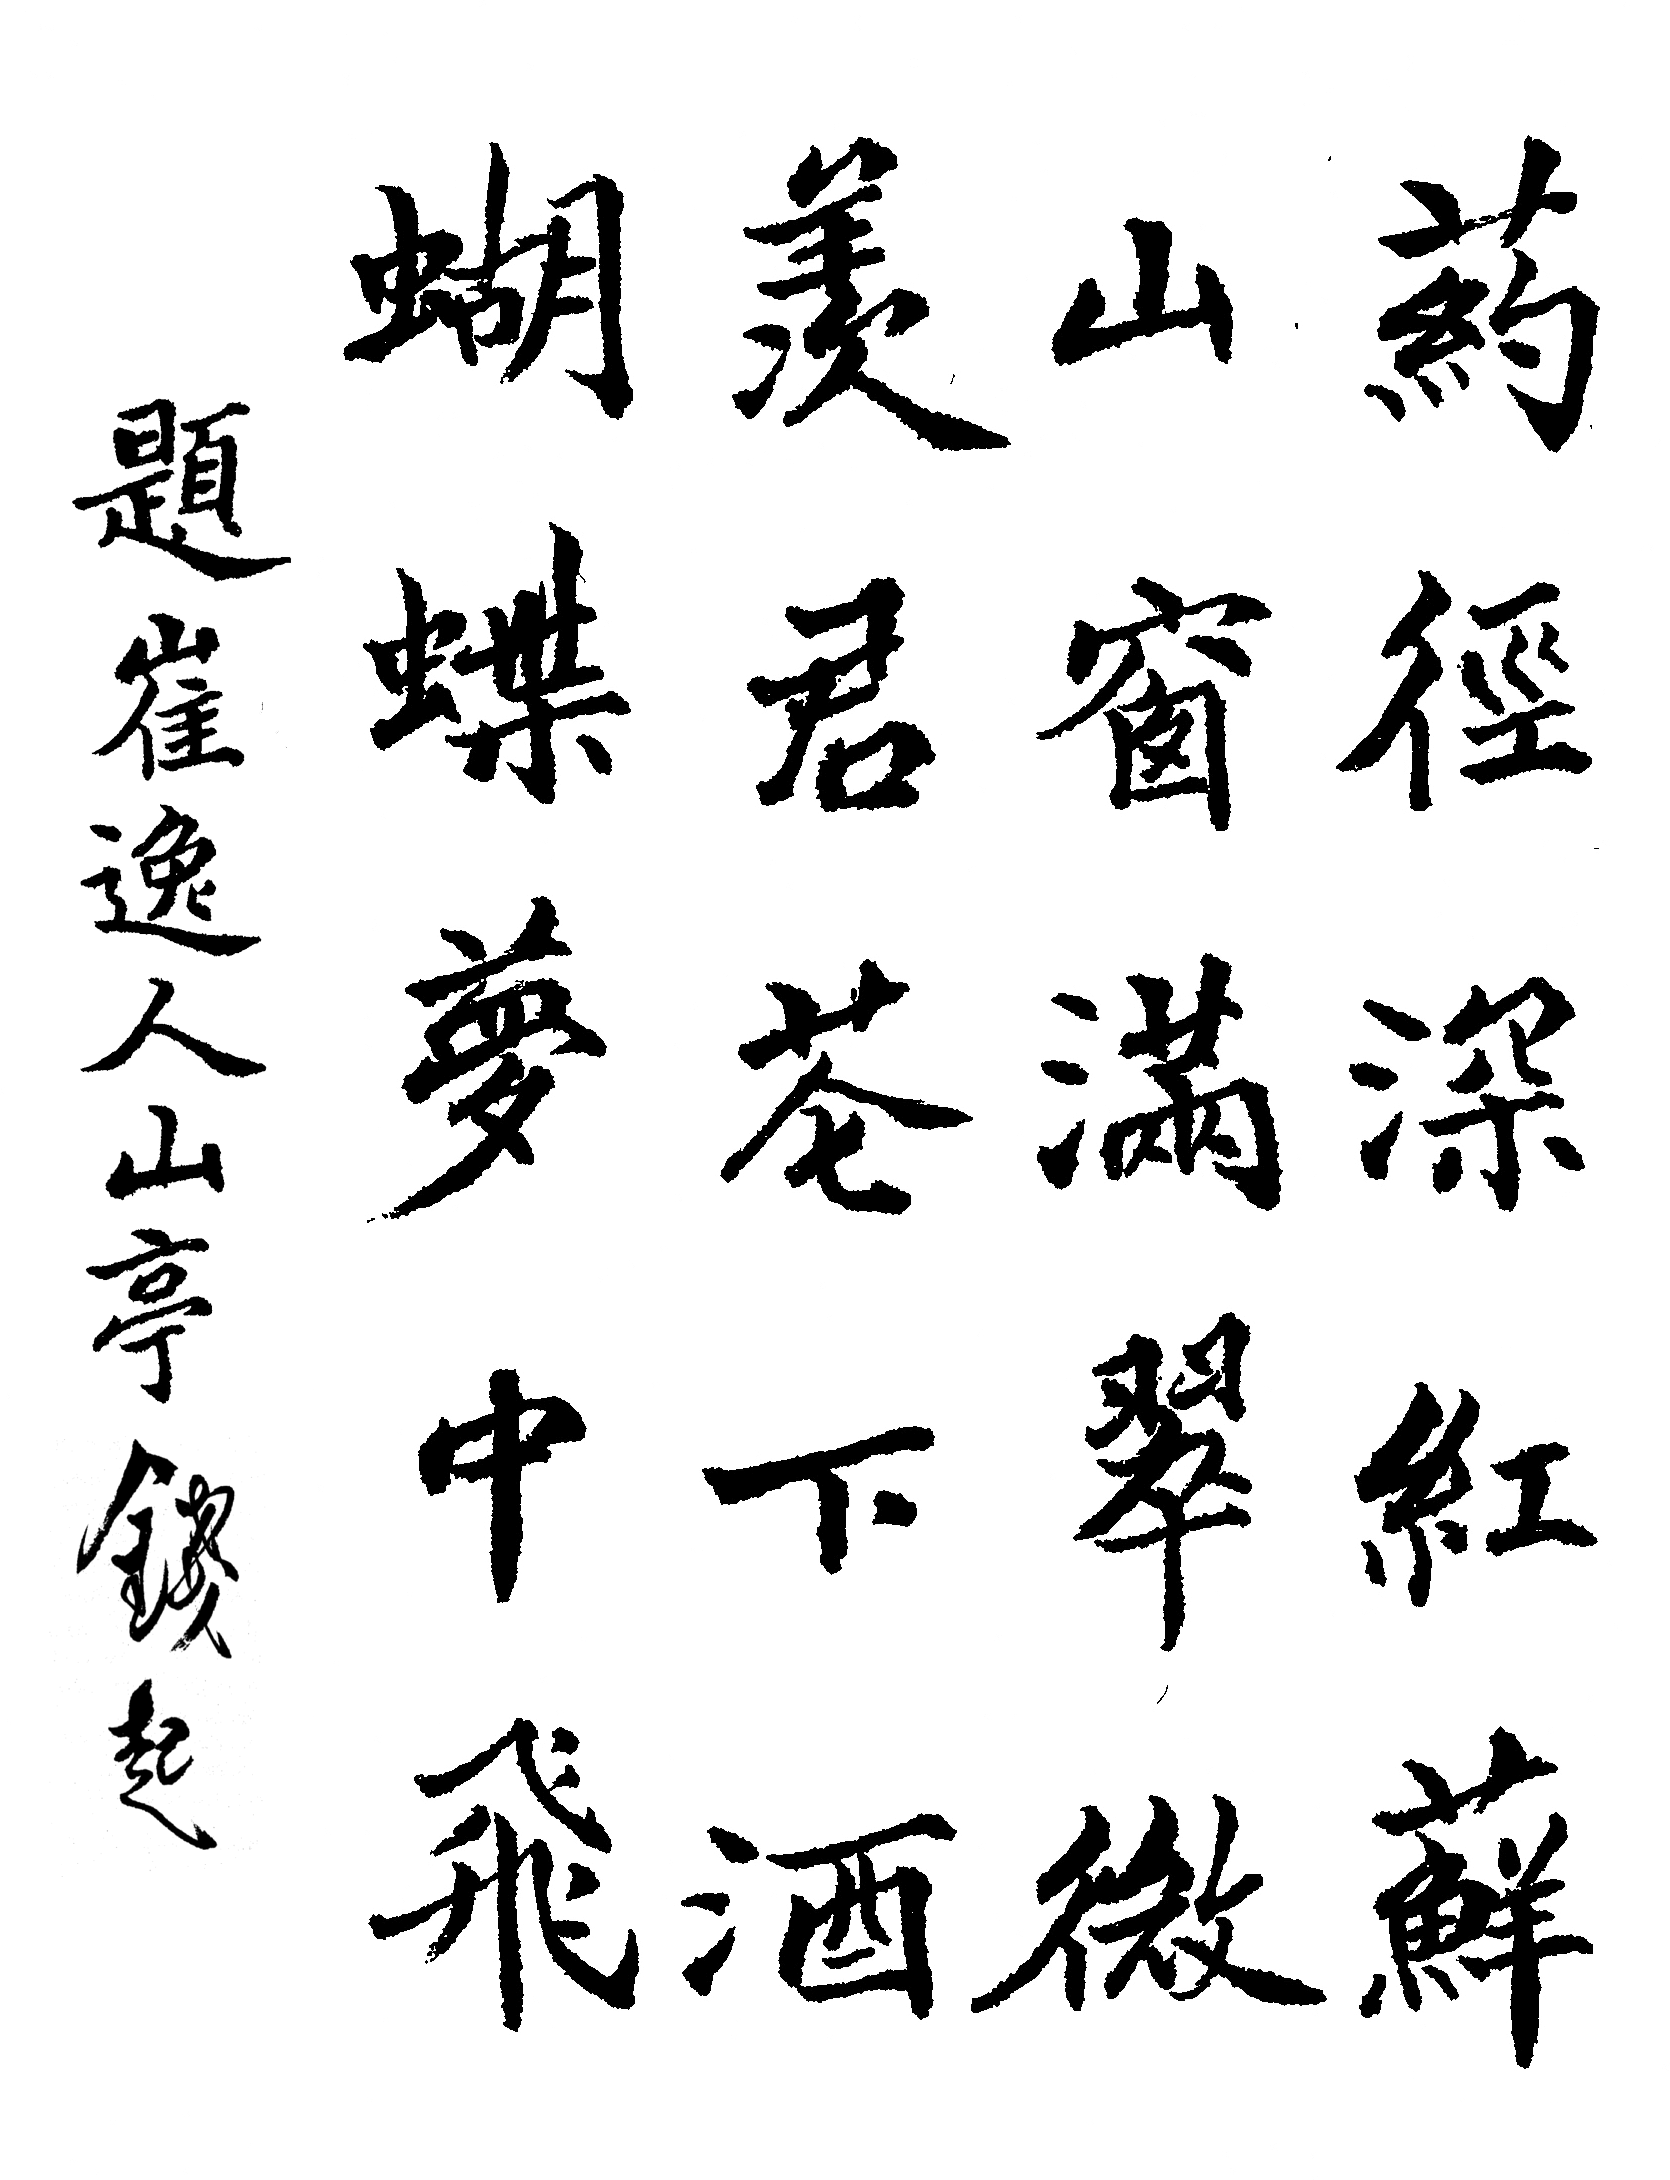 葯徑深紅蘚
山窗滿翠微
羨君花下酒
蝴蝶夢中飛
題崔逸人山亭 錢起